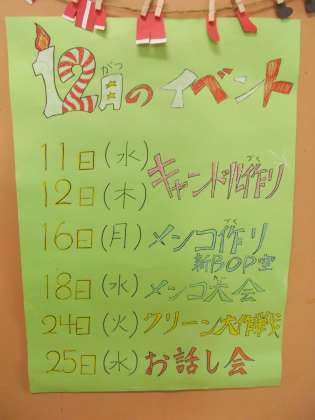 12月のイベント
がつ
11日(水)
キャンドル作り
づく
12日(木)
16日(月) メンコ作り
づく
新BOP室
18日(水) メンコ大会
24日(火) クリーン大作戦
25日(水) お話し会